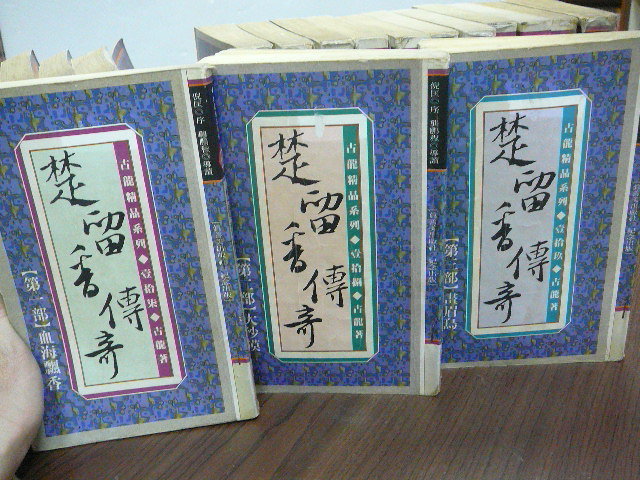 楚留香傳奇
古龍精品系列◆壹拾柒◆古龍著
【第一部】血海飄香
倪匡◎序
楚留香傳奇
古龍精品系列◆壹拾捌◆古龍著
【第二部】大沙漠
倪匡◎序 龔鵬程◎導讀
楚留香傳奇
古龍精品系列◆壹拾玖◆古龍著
【第三部】畫眉鳥